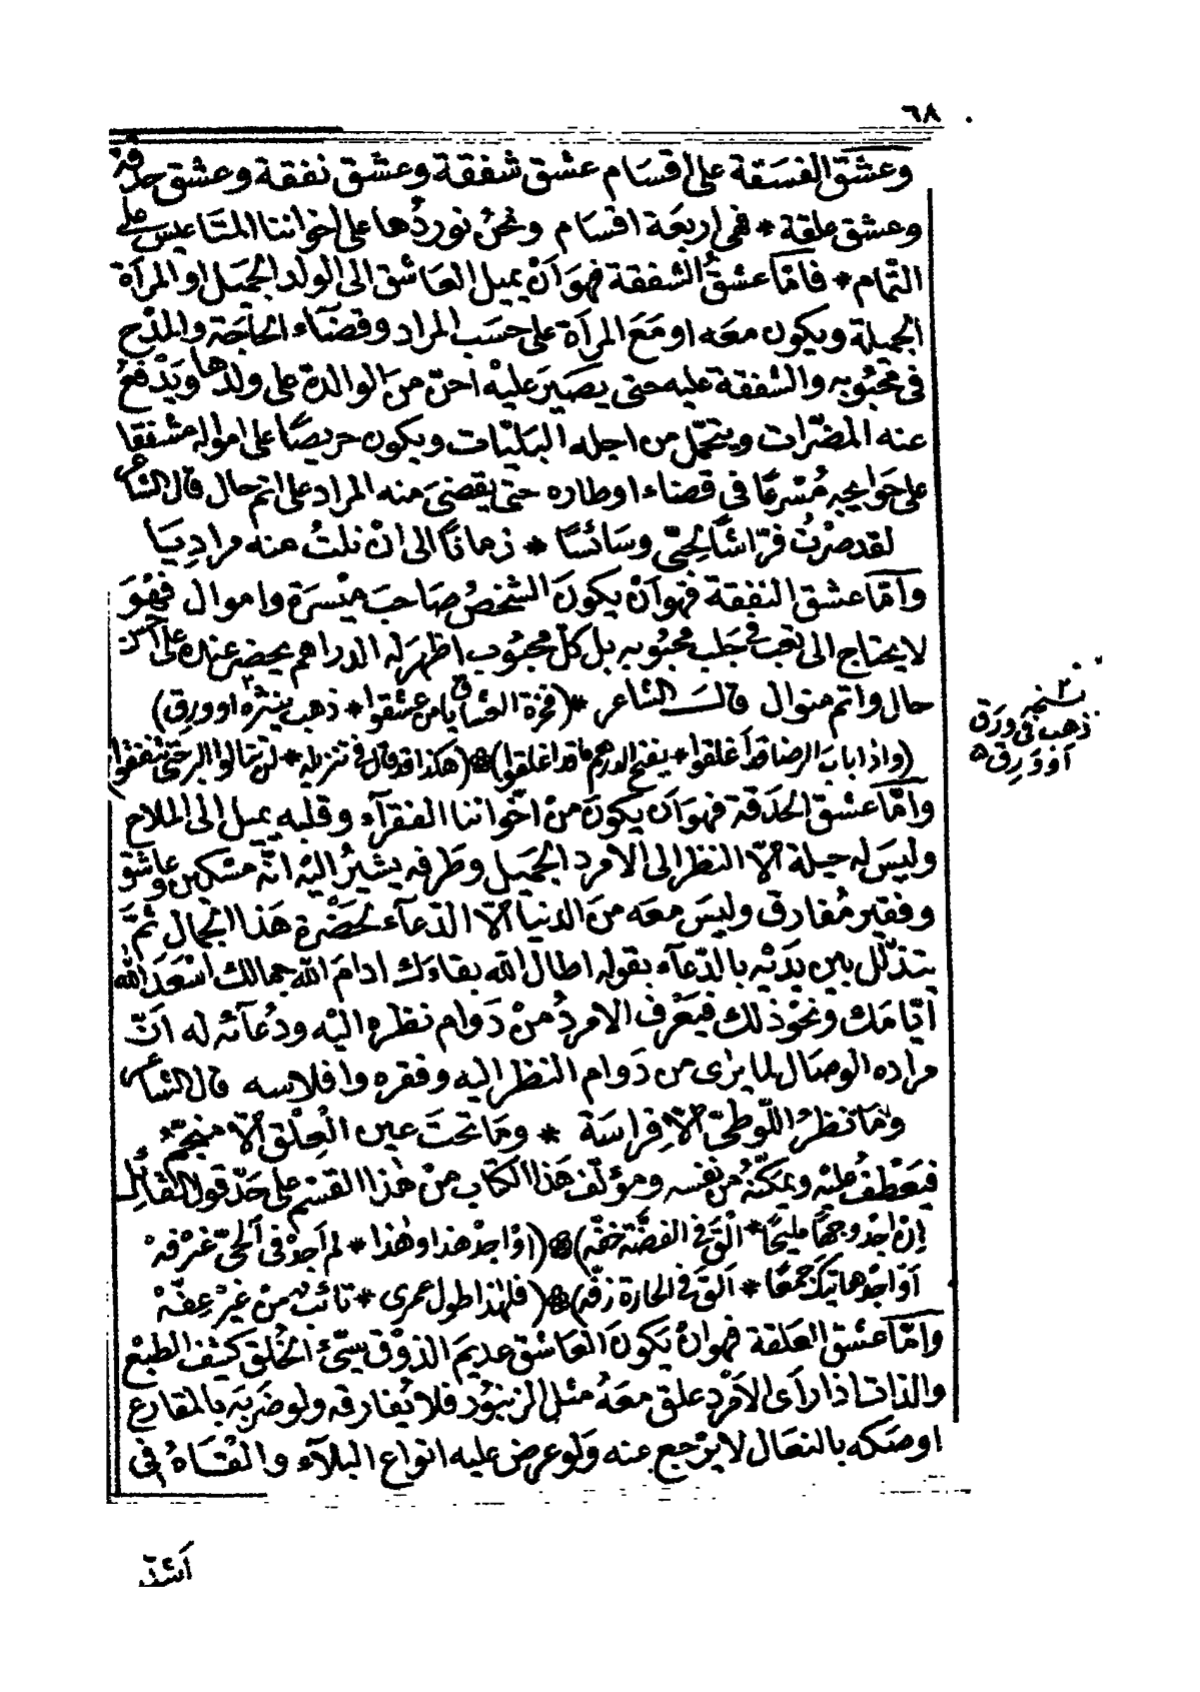 ٦٨
وعشق الفسقة على اقسام عشق شفقة وعشق نفقة وعشق حدقة
وعشق علقة * فهى اربعة اقسام ونحن نوردها على اخواننا المتاعيس على
التمام * فامّا عشق الشفقة فهو اَنْ يميل العاشق الى الولد الجميل او المرأة
الجميلة ويكون معه او مَعَ المرأة على حسَب المراد وقضآء الحاجة والمدْح
فى محبُوبه والشفقة عليه حتى يصيرَ عليْه احنّ منَ الوالدة على ولدها ويَدْفعُ
عنه المضرّات ويتحمّل من اجله البَليّات ويكون حريصًا على امواله مشفقا
على حَوايجه مُسْرعًا فى قضاء اوطاره حتى يقضىَ منه المراد على اتم حال قال الشاعر
لقد صرْتُ فرّاشًا لِحِبّى وسَائسًا * زمانًا الى انْ نلتُ منه مرادِيَا
وامّا عشق النفقة فهو اَنْ يكونَ الشخصُ صاحبَ ميْسرَة واموال فهْوَ
لا يحتاج الى تعب فى جَلب محبُوبه بل كلّ محبُوب اظهرَ له الدراهم يحضر عنده على احسن
حال واتم منوال قالَ الشاعر * (فخرة العشاق يا من عشقوا * ذهب ينثره او وَرِق)
(واذا بابَ الرضا قد اَغلقوا * يفتح الدرهم ما قد اغلقوا) (هكذا قد قال فى تنزيله * لن تنالوا البر حتى تنفقوا)
وامّا عشق الحَدَقة فهو اَن يكونَ منْ اخْواننا الفقرآء وقلبه يميل الى الملاح
وليسَ له حيلة الّا النظر الى الامرد الجميل وطَرفه يشيرُ اليْه انّه مسْكين وعاشق
وفقير مُفارق وليسَ معه منَ الدنيا الّا الدّعآء لحَضْرة هَذا الجمال ثمّ
يتذلّل بين يدَيْه بالدّعآء بقوله اطال اللّه بقاءك ادامَ اللّه جمالك اسْعَدَ اللّه
ايّامَك ونحْوَ ذلك فيَعْرف الامردُ منْ دَوام نظره اليْه ودُعآئه له اَنّ
مراده الوصَال لما يرَى من دَوام النظر اليه وفقره وافلاسه قال الشاعر
ومَا نظرُ اللّوطىّ الّا فِراسَة * ومَا تحتَ عين الْعِلْق الّا منجّمُ
فيَعْطفُ عليْه ويمكّنُه من نفسه ومؤلّف هَذا الكتاب منْ هٰذا القسْم على حَدّ قول القائل
اِنْ اجدْ وجهًا مليحًا * اَلْقَ فى الفضّة خفّه) (اوْ اجدْ هذا وهٰذا * لم اَجدْ فى اَلْحىّ غرْفهْ
اَوْ اجدْ هاتيكَ جمعًا * اَلقَ فى الحارة زفّه) (فلهٰذا طول عمرى * تائبٌ منْ غيْر عِفّهْ
وامّا عشق العَلقة فهو انْ يَكونَ العَاشق عديمَ الذوْق سيّئ الخُلق كثف الطبْع
والذات اذا رأى الاَمْرَد علق معَهُ مثل الزنبُور فلا يُفارقه ولو ضَربَه بالمقارع
او صَكه بالنعَال لا يرْجع عنه ولو عرض عليه انواع البلآء والْقسَاة فى
نسخه
ذهب فى وَرَق
اَوْ وَرِق
اَشدّ